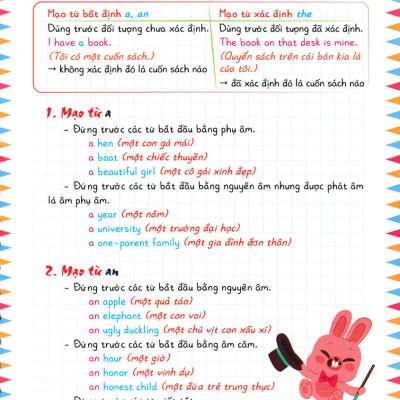 Mạo từ bất định a, an
Dùng trước đối tượng chưa xác định.
I have a book.
(Tôi có một cuốn sách.)
→ không xác định đó là cuốn sách nào
Mạo từ xác định the
Dùng trước đối tượng đã xác định.
The book on that desk is mine.
(Quyển sách trên cái bàn kia là
của tôi.)
→ đã xác định đó là cuốn sách nào
1. Mạo từ a
- Đứng trước các từ bắt đầu bằng phụ âm.
a hen (một con gà mái)
a boat (một chiếc thuyền)
a beautiful girl (một cô gái xinh đẹp)
- Đứng trước các từ bắt đầu bằng nguyên âm nhưng được phát âm
là âm phụ âm.
a year (một năm)
a university (một trường đại học)
a one-parent family (một gia đình đơn thân)
2. Mạo từ an
- Đứng trước các từ bắt đầu bằng nguyên âm.
an apple (một quả táo)
an elephant (một con voi)
an ugly duckling (một chú vịt con xấu xí)
- Đứng trước các từ bắt đầu bằng âm câm.
an hour (một giờ)
an honor (một vinh dự)
an honest child (một đứa trẻ trung thực)